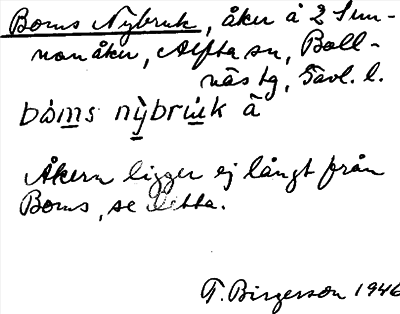 Boms Nybruk, åker å 2 Sun-
nanåker, Alfta sn, Boll-
näs tg, Gävl. l.
bòms nỳbrùk å
Åkern ligger ej långt från
Boms, se detta.
T. Birgerson 1946